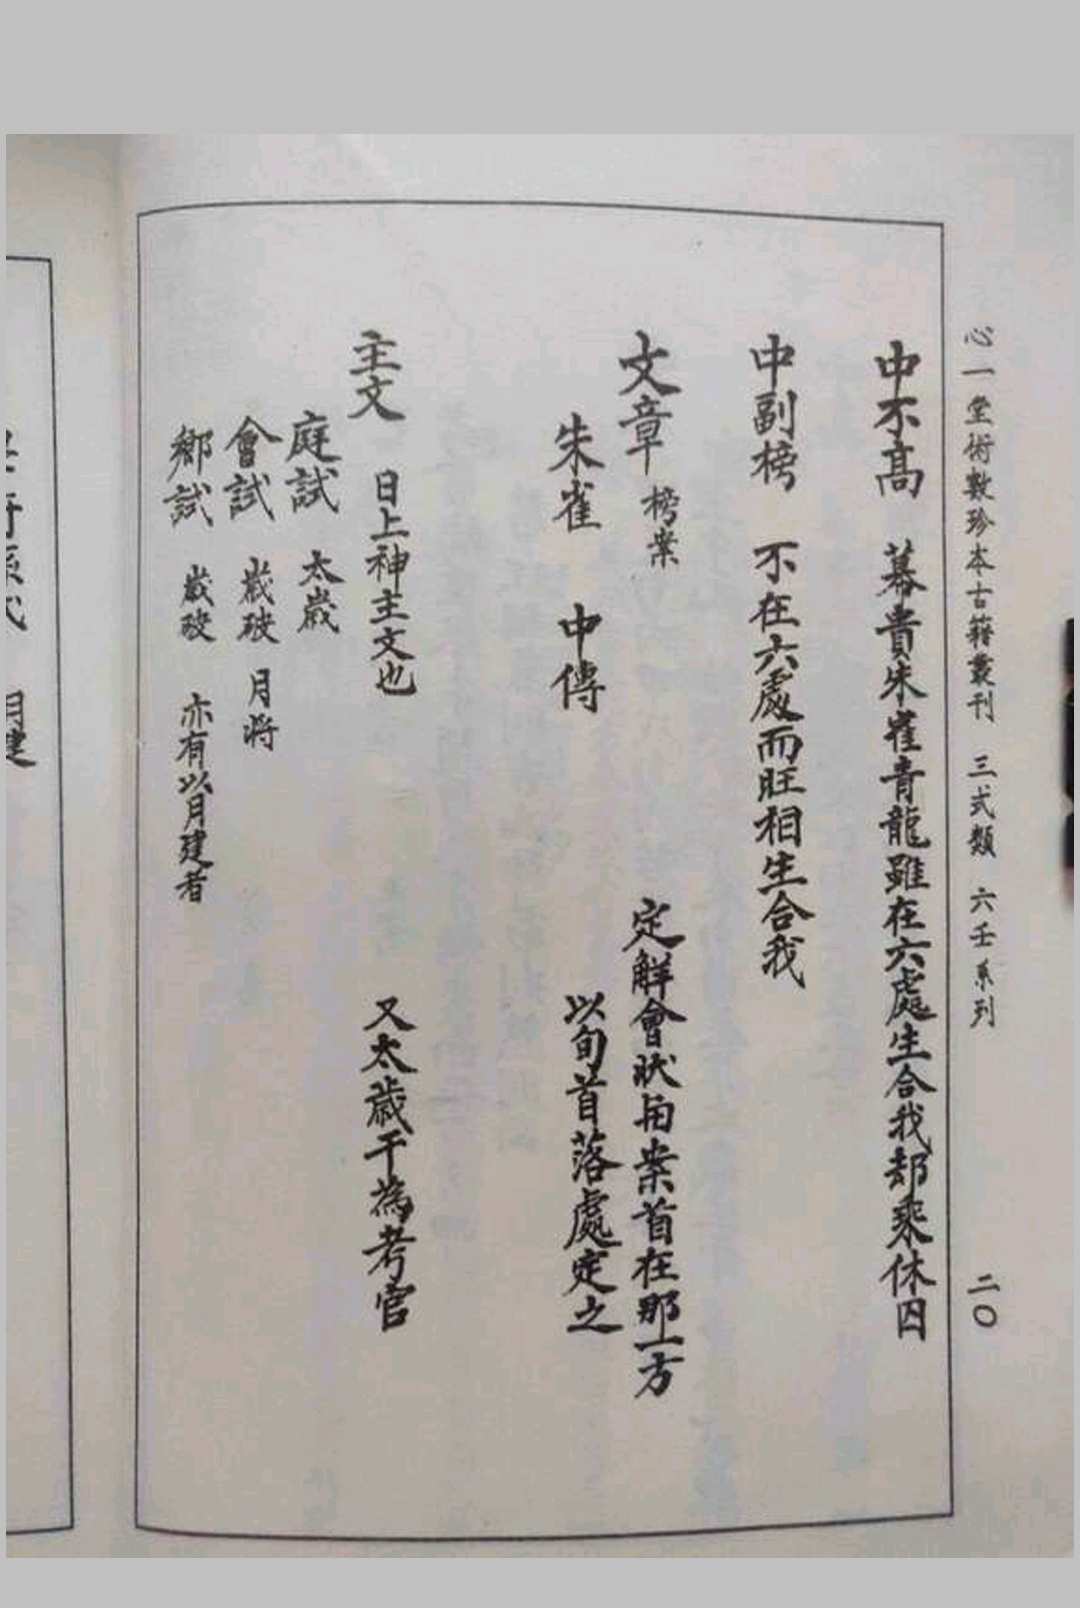 心一堂術數珍本古籍叢刊 三式類 六壬系列 二〇
中不高 幕貴朱雀青龍雖在六處生合我却乘休囚
中副榜 不在六處而旺相生合我
文章 榜案 定解會狀由案首在那一方
朱雀 中傳 以旬首落處定之
主文 日上神主文也 又太歲干為考官
庭試 太歲
會試 歲破 月將
鄉試 歲破 亦有以月建者
月建